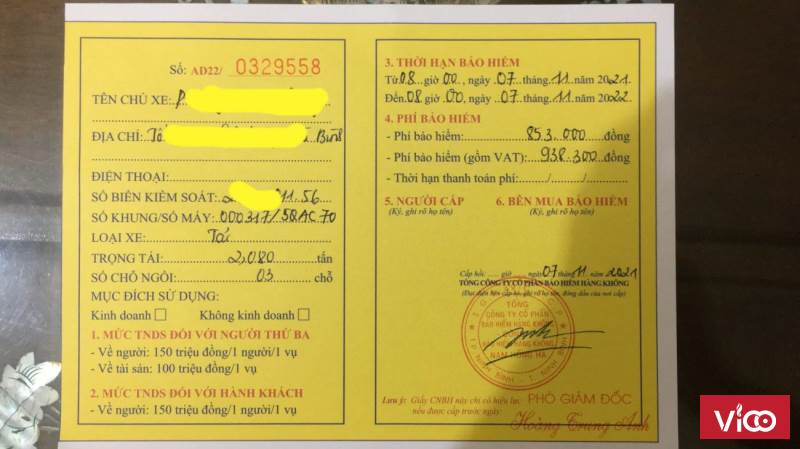 Số: AD22/ 0329558
TÊN CHỦ XE:
ĐỊA CHỈ: Tổ Bình
ĐIỆN THOẠI:
SỐ BIỂN KIỂM SOÁT: 11.56
SỐ KHUNG/SỐ MÁY: 000317/5QAC70
LOẠI XE: Tải
TRỌNG TẢI: 2,080 tấn
SỐ CHỖ NGỒI: 03 chỗ
MỤC ĐÍCH SỬ DỤNG:
Kinh doanh Không kinh doanh
1. MỨC TNDS ĐỐI VỚI NGƯỜI THỨ BA
- Về người: 150 triệu đồng/1 người/1 vụ
- Về tài sản: 100 triệu đồng/1 vụ
2. MỨC TNDS ĐỐI VỚI HÀNH KHÁCH
- Về người: 150 triệu đồng/1 người/1 vụ
3. THỜI HẠN BẢO HIỂM
Từ 08 giờ 00, ngày 07 tháng 11 năm 2021
Đến 08 giờ 00, ngày 07 tháng 11 năm 2022
4. PHÍ BẢO HIỂM
- Phí bảo hiểm: 853.000 đồng
- Phí bảo hiểm (gồm VAT): 938.300 đồng
- Thời hạn thanh toán phí: / /
5. NGƯỜI CẤP 6. BÊN MUA BẢO HIỂM
(Ký, ghi rõ họ tên) (Ký, ghi rõ họ tên)
Cấp hồi giờ ngày 07 tháng 11 năm 2021
TỔNG CÔNG TY CỔ PHẦN BẢO HIỂM HÀNG KHÔNG
TỔNG
CÔNG TY CỔ PHẦN
BẢO HIỂM HÀNG KHÔNG
BẢO HIỂM HÀNG KHÔNG
NAM HỒNG HÀ
Lưu ý: Giấy CNBH này chỉ có hiệu lực
nếu được cấp trước ngày:
PHÓ GIÁM ĐỐC
Hoàng Trung Anh
Vico